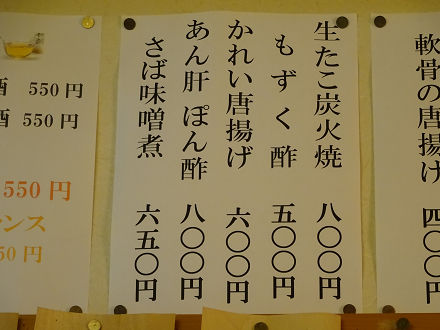 軟骨の唐揚げ 四〇〇円
生たこ炭火焼 八〇〇円
もずく酢 五〇〇円
かれい唐揚げ 六〇〇円
あん肝ぽん酢 八〇〇円
さば味噌煮 六五〇円
酒 550円
酒 550円
550円
ンス
50円